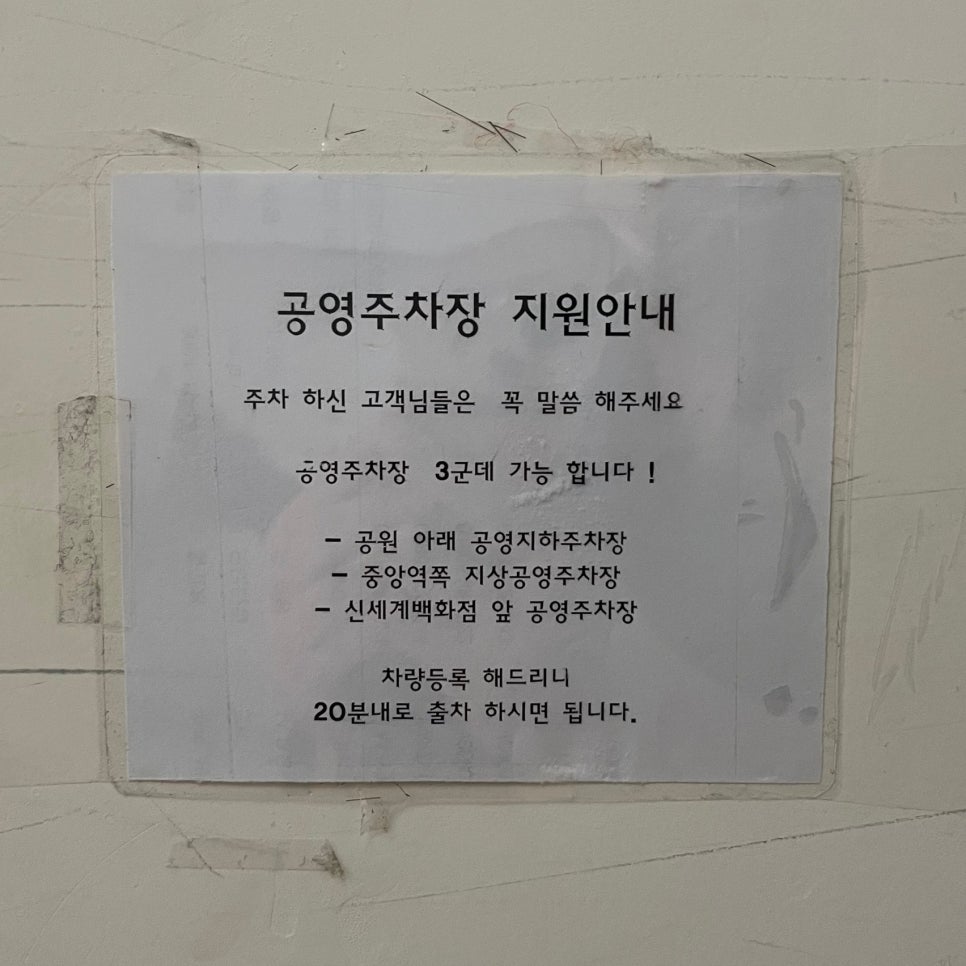 공영주차장 지원안내
주차 하신 고객님들은 꼭 말씀 해주세요
공영주차장 3군데 가능 합니다 !
- 공원 아래 공영지하주차장
- 중앙역쪽 지상공영주차장
- 신세계백화점 앞 공영주차장
차량등록 해드리니
20분내로 출차 하시면 됩니다.